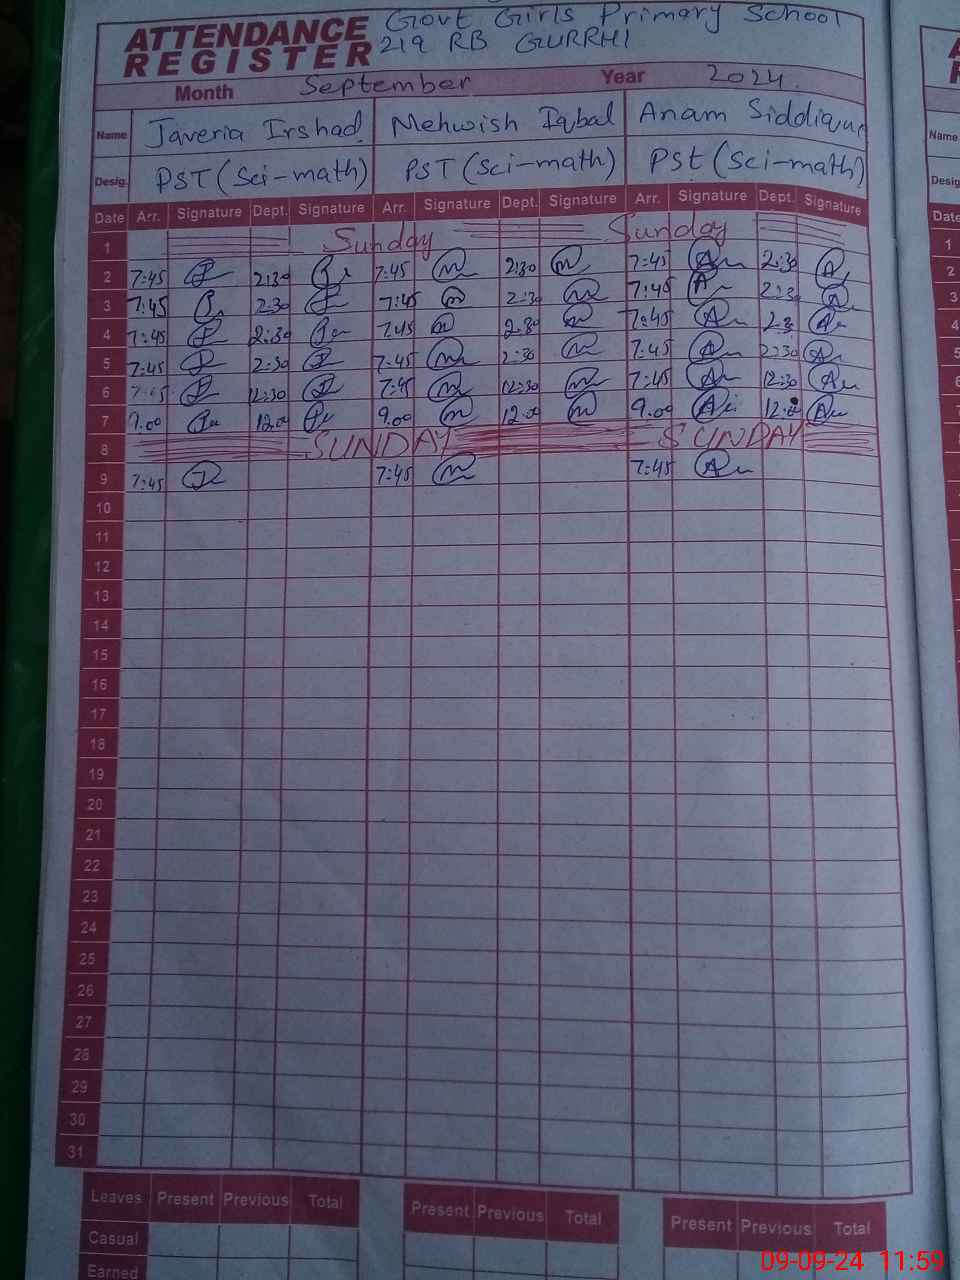 Govt Girls Primary School
ATTENDANCE
REGISTER 219 RB GURRHI
Month September Year 2024.
Name Javeria Irshad Mehwish Iqbal Anam Siddique
Desig. PST (Sci-math) PST (Sci-math) PST (Sci-math)
Date Arr. Signature Dept. Signature Arr. Signature Dept. Signature Arr. Signature Dept. Signature
1 Sunday Sunday
2 7:45 2:30 7:45 2:30 7:45 2:30
3 7:45 2:30 7:45 2:30 7:45 2:3
4 7:45 2:30 7:45 2:30 7:45 2:3
5 7:45 2:30 7:45 2:30 7:45 2:30
6 7:45 12:30 7:45 12:30 7:45 12:30
7 9.00 12.00 9.00 12.00 9.00 12.00
8 SUNDAY SUNDAY
9 7:45 7:45 7:45
10
11
12
13
14
15
16
17
18
19
20
21
22
23
24
25
26
27
28
29
30
31
Leaves Present Previous Total Present Previous Total Present Previous Total
Casual
Earned
Name
Desig
Date
1
2
3
4
5
6
09-09-24 11:59